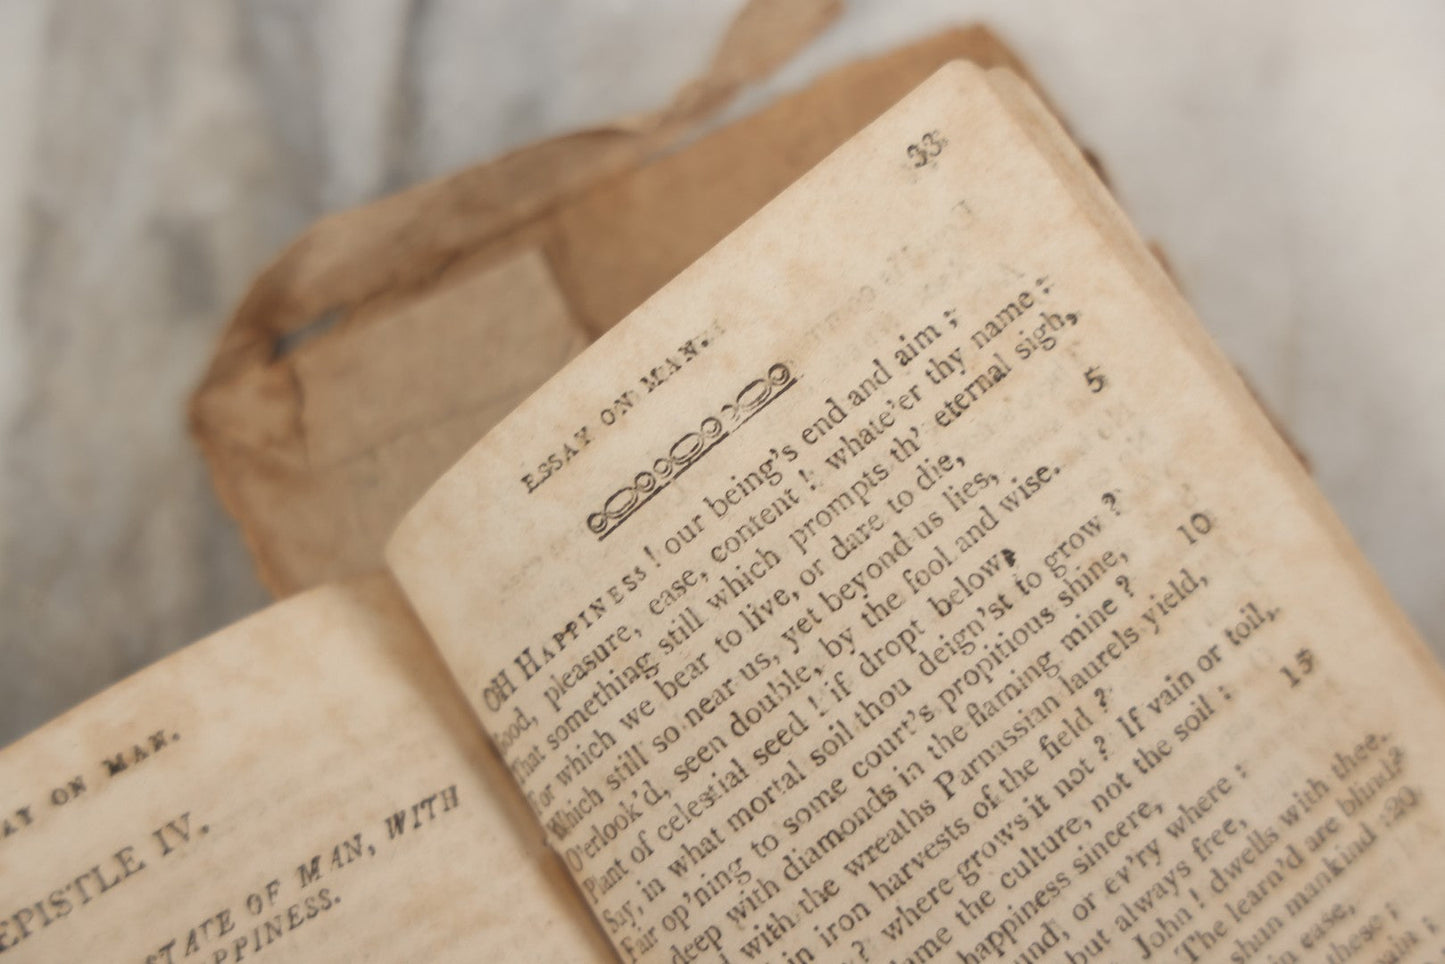 AY ON MAN.
EPISTLE IV.
STATE OF MAN, WITH
PPINESS.
ESSAY ON MAN.
33
OH HAPPINESS! our being's end and aim;
Good, pleasure, ease, content! whate'er thy name:
That something still which prompts th' eternal sigh,
For which we bear to live, or dare to die,
Which still so near us, yet beyond us lies, 5
O'erlook'd, seen double, by the fool and wise.
Plant of celestial seed! if dropt below,
Say, in what mortal soil thou deign'st to grow?
Fair op'ning to some court's propitious shine,
deep with diamonds in the flaming mine? 10
with the wreaths Parnassian laurels yield,
in iron harvests of the field?
? where grows it not? If vain or toil,
ame the culture, not the soil:
happiness sincere, 15
und, or ev'ry where:
but always free,
John! dwells with thee.
The learn'd are blind:
shun mankind: 20
in ease,
these;
ain;